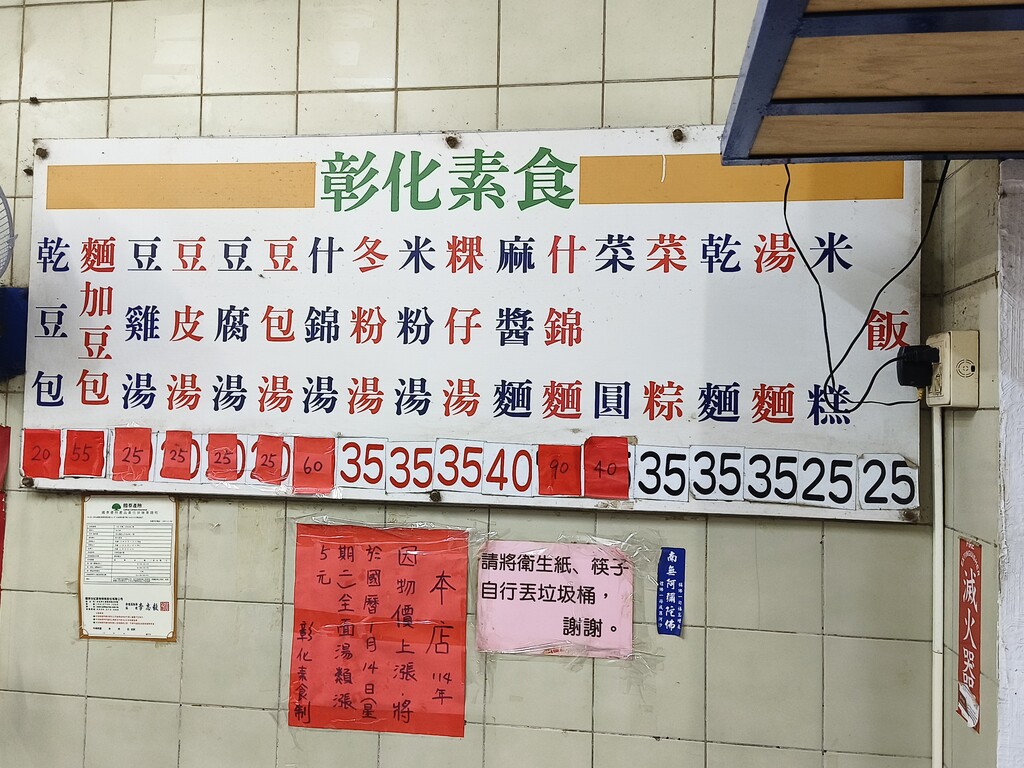 彰化素食
乾豆包 20
麵加豆包 55
豆雞湯 25
豆皮湯 25
豆腐湯 25
豆包湯 25
什錦湯 60
冬粉湯 35
米粉湯 35
粿仔湯 35
麻醬麵 40
什錦麵 90
菜圓 40
菜粽 35
乾麵 35
湯麵 35
米糕 25
飯 25
本店114年
因物價上漲.將
於國曆1月14日(星
期二)全面湯類漲
5元
彰化素食制
請將衛生紙、筷子
自行丟垃圾桶，
謝謝。
南無阿彌陀佛
滅火器